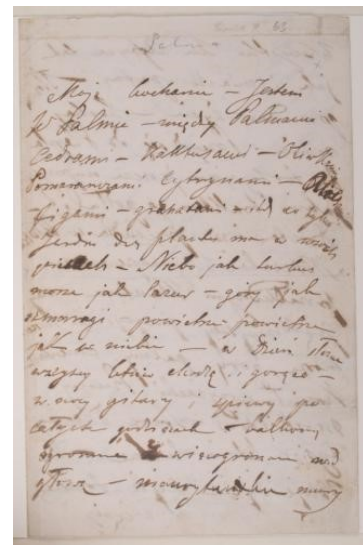 Moje kochanie – Jestem
w Palmie – między Palmami
cedrami – kaktusami – Oliwkami
Pomarańczami cytrynami –
figami – granatami – itd co tylko
Jardin des plantes ma w swoich
piecach – Niebo jak turkus
morze jak lazur – góry jak
szmaragd powietrze powietrze
jak w niebie – w dzień słońce
wszyscy letnio chodzą i gorąco –
w nocy gitary i śpiewy po
całych godzinach – balkony
ogromne z winogronami nad
głową – maurytańskie mury